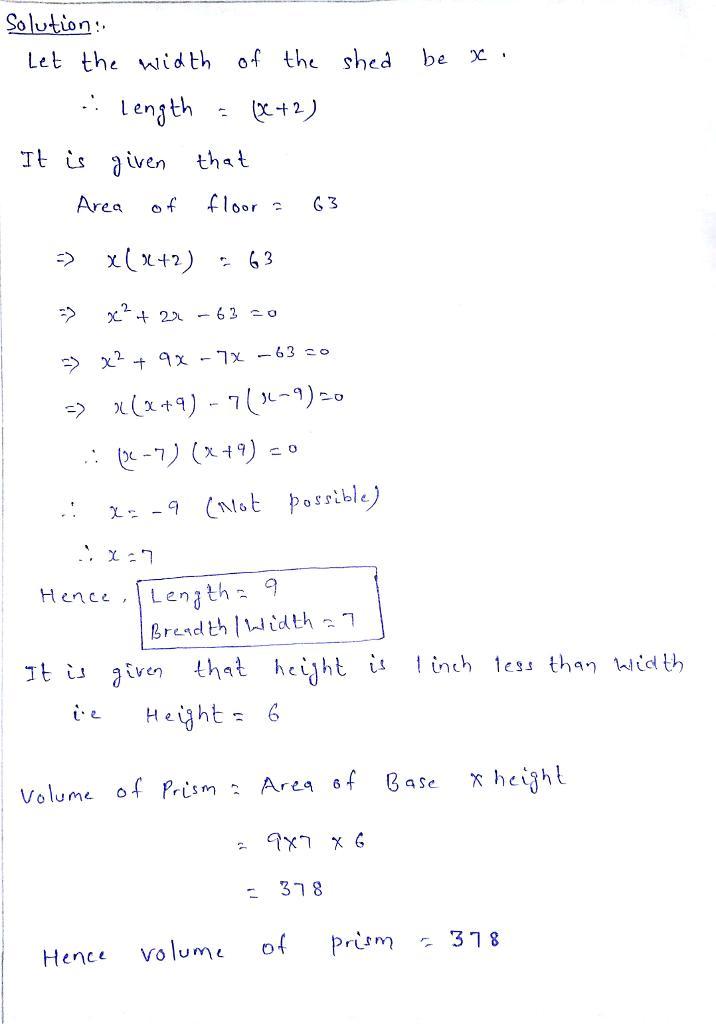 Solution:.
Let the width of the shed be x.
∴ Length = (x+2)
It is given that
Area of floor = 63
=> x(x+2) = 63
=> x² + 2x - 63 = 0
=> x² + 9x - 7x - 63 = 0
=> x(x+9) - 7(x-9) = 0
∴ (x-7) (x+9) = 0
∴ x = -9 (Not possible)
∴ x = 7
Hence, Length = 9
Breadth | Width = 7
It is given that height is 1 inch less than width
i.e Height = 6
Volume of Prism = Area of Base x height
= 9x7 x 6
= 378
Hence volume of prism = 378